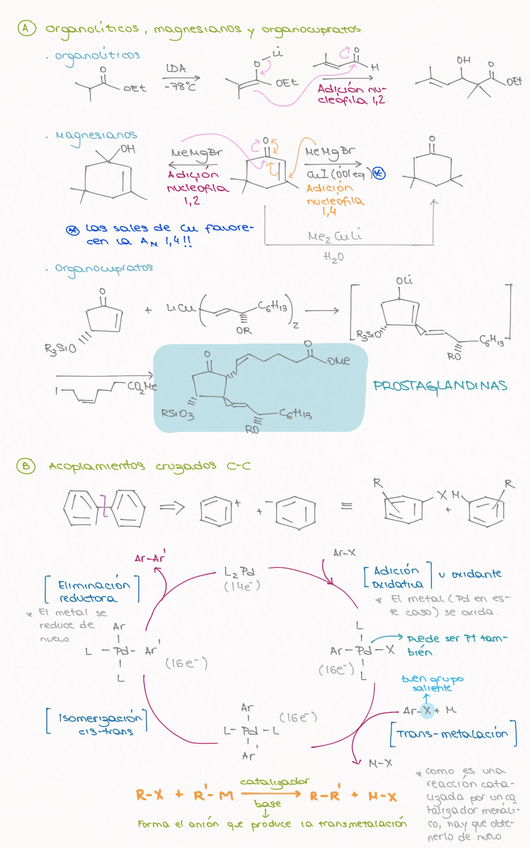 A Organolíticos, magnesianos y organocupratos
· Organolíticos
O OEt
LDA
-78°C
O Li
OEt
O H
Adición nu-
cleófila 1,2
OH O OEt
· Magnesianos
OH
MeMgBr
Adición
nucleófila
1,2
O
MeMgBr
CuI (0'01 eq) *
Adición
nucleófila
1,4
O
* Las sales de Cu favore-
cen la AN 1,4!!
Me2CuLi
H2O
· Organocupratos
O
R3SiO
+ LiCu ( C6H13 )2
OR
OLi
R3SiO
C6H13
RO
I CO2Me
O O OMe
RSiO3
C6H13
RO
PROSTAGLANDINAS
B Acoplamientos cruzados C-C
⇒ + + - ≡ R X + M R
Ar-Ar'
L2Pd
(14e-)
Ar-X
[Eliminación
reductora]
* El metal se
reduce de
nuevo
[Adición
oxidativa] u oxidante
* El metal (Pd en es-
te caso) se oxida
Ar
L - Pd - Ar'
L
(16e-)
L
Ar - Pd - X
L
(16e-)
Puede ser Pt tam-
bién.
buen grupo
saliente
Ar-X + M
[Isomerización
cis-trans]
Ar
L - Pd - L
Ar'
(16e-)
[Trans-metalación]
M-X
R-X + R'-M catalizador base R-R' + M-X
Forma el anión que produce la transmetalación
* Como es una
reacción cata-
lizada por un ca
talizador metáli-
co, hay que obte-
nerlo de nuevo